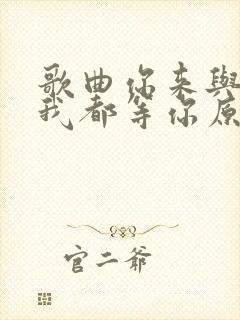 歌曲你来與
我都等你原
官二爷